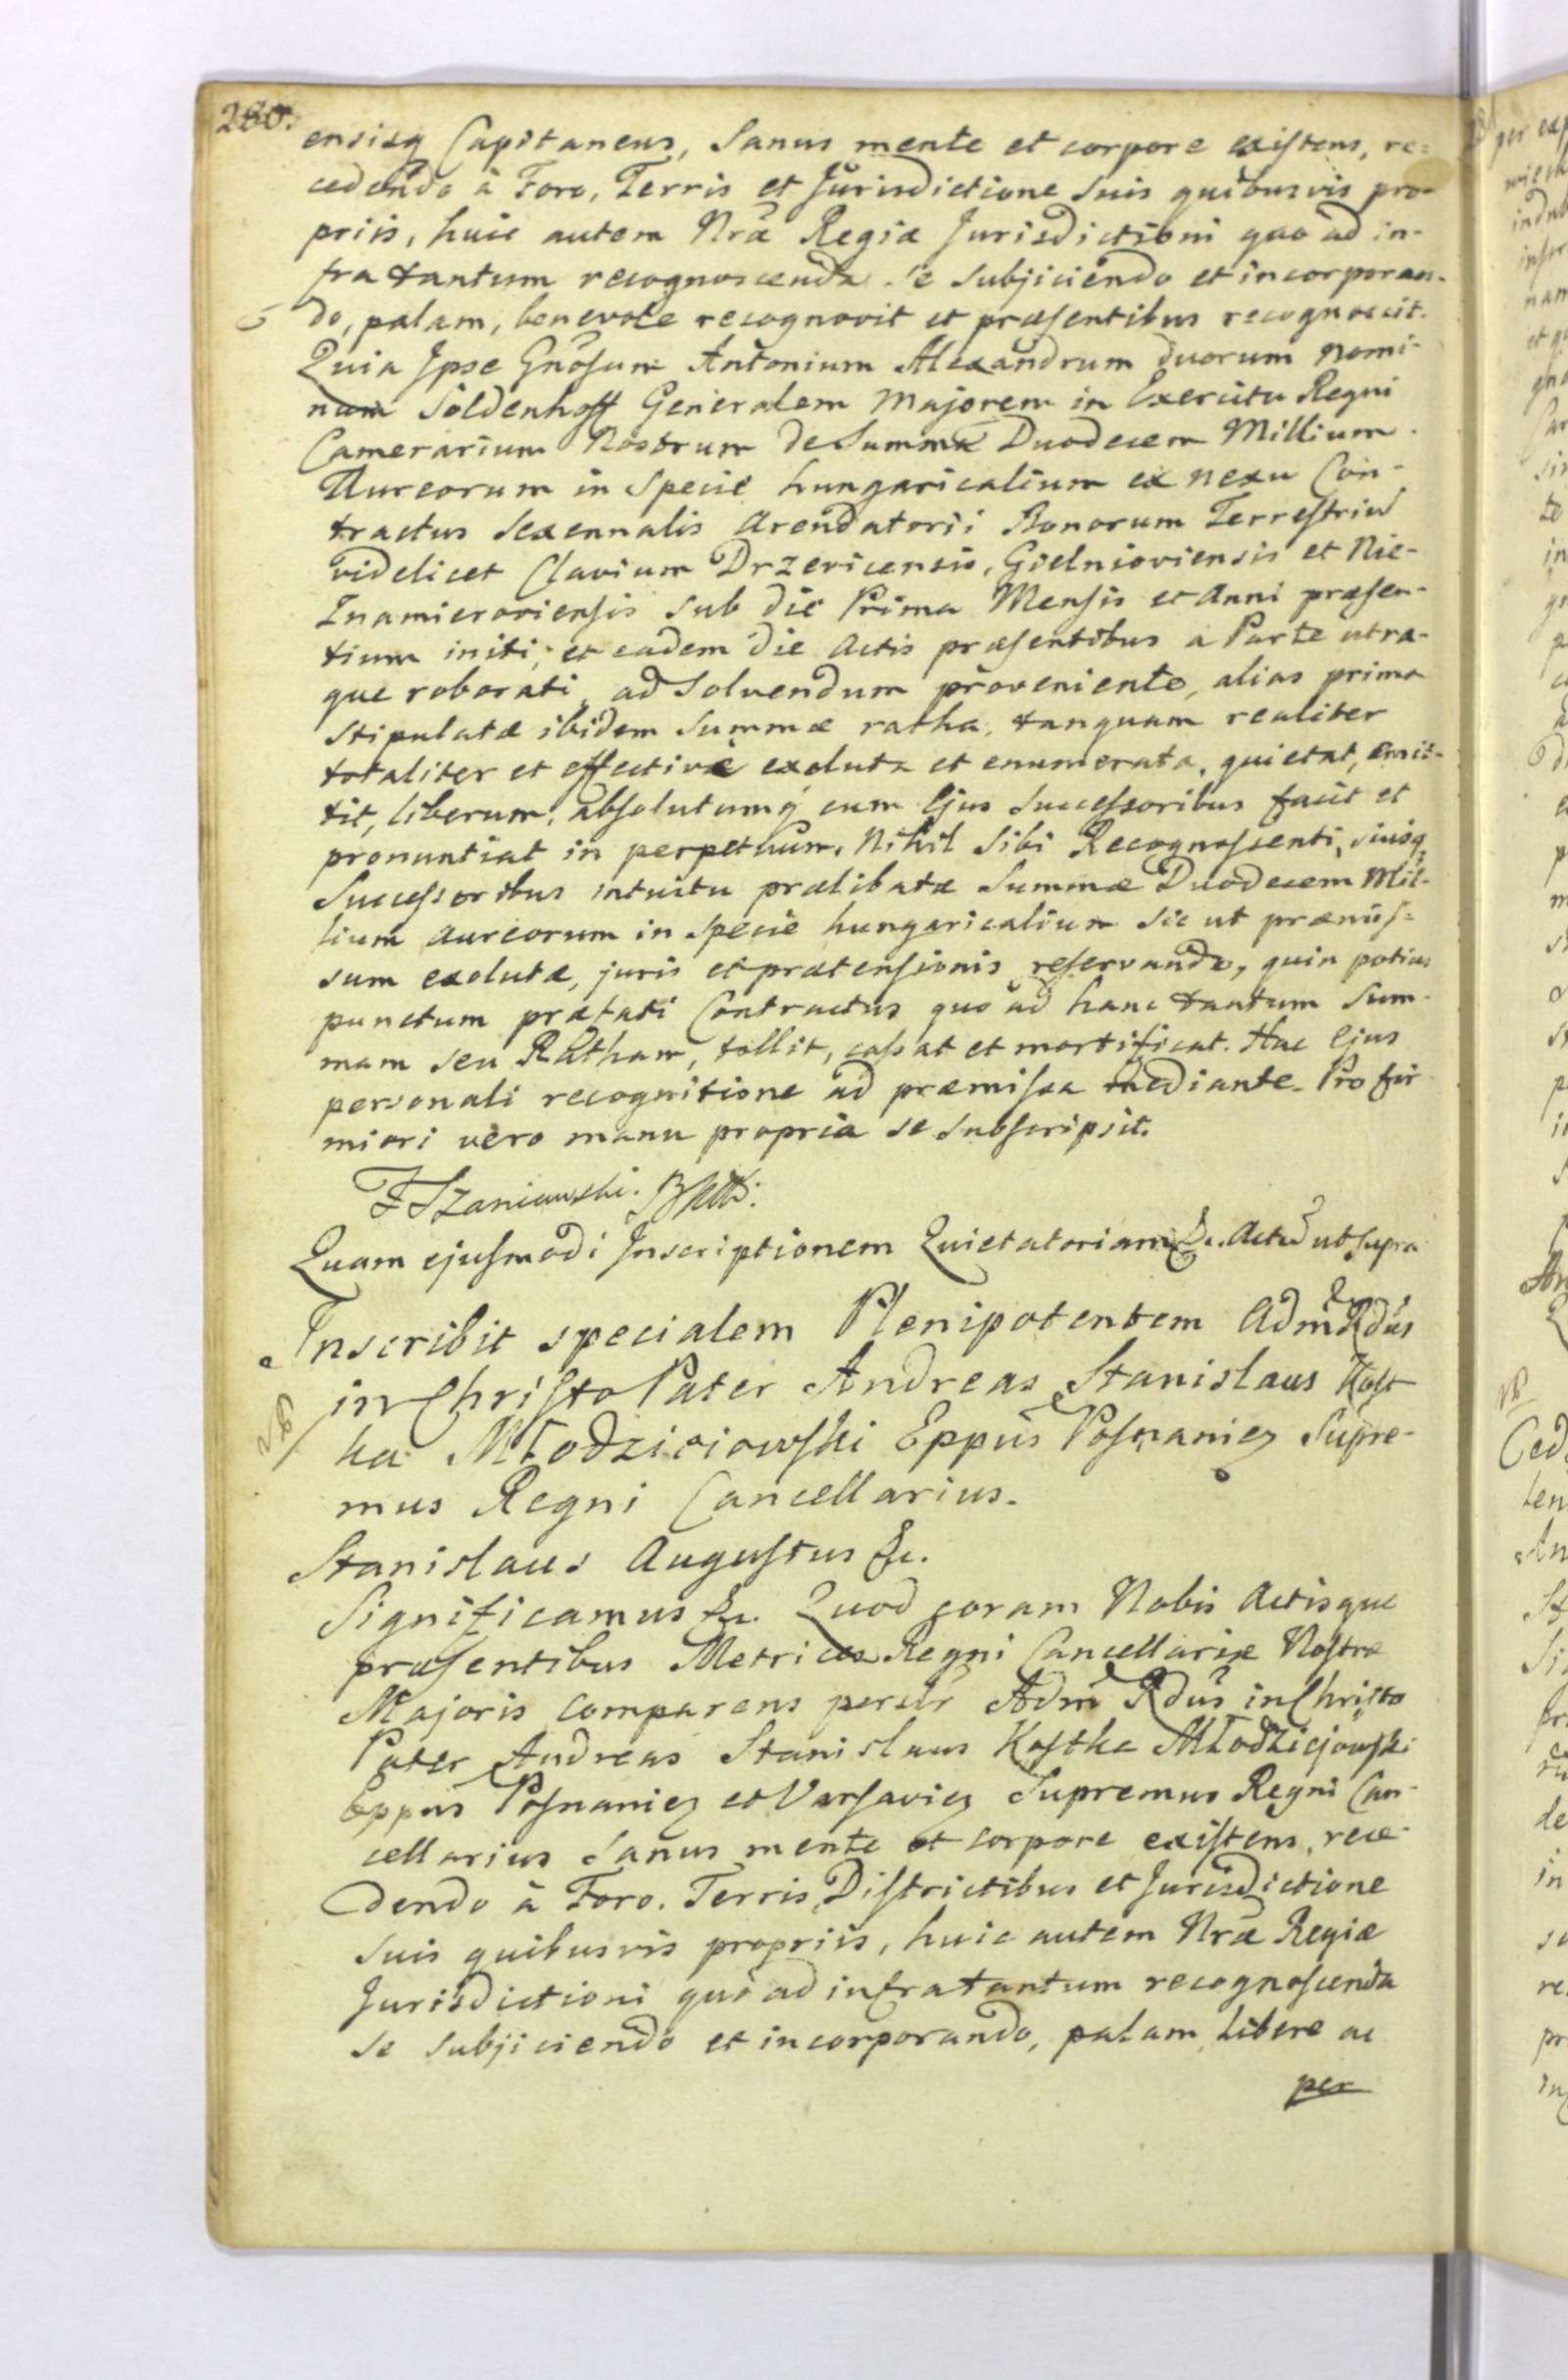 280.
ensisq Capitaneus, Sanus mente et corpore existens, re=
cedendo à Foro, Terris et Jurisdictione Suis quibusvis pro-
priis, huic autem Nræ Regiæ Jurisdictioni quo ad in-
fra tantum recognoscenda se Subjiciendo et incorporan-
do, palam, benevole recognovit et præsentibus recognoscit.
Quia Ipse Gnosum Antonium Alexandrum duorum nomi-
num Soldenhoff Generalem Majorem in Exercitu Regni
Camerarium Nostrum de Summa Duodecem Millium
Aureorum in Specie hungaricalium ex nexu Con-
tractus Sexennalis Arendatorii Bonorum Terrestriu
videlicet Clavium Drzevicensis, Gielnioviensis et Nie-
Znamieroviensis Sub die Prima Mensis et Anni præsen-
tium initi, et eadem die Actis præsentibus a Parte utra-
que roborati, ad Solvendum proveniente, alias prima
Stipulatæ ibidem Summæ ratha, tanquam realiter
totaliter et effectivè exoluta et enumerata, quietat, emit-
tit, liberum, absolutumq cum Ejus Successoribus facit et
pronuntiat in perpetuum. Nihil Sibi Recognoscenti, suisq
Successoribus intuitu prælibatæ Summæ Duodecem Mil-
lium Aureorum in Specie hungaricalium Sic ut præmis=
sum exolutæ, juris et prætensionis reservando, quin potius
punctum præfati Contractus quo ad hanc tantum Sum-
mam seu Ratham, tollit, cassat et mortificat. Hac Ejus
personali recognitione ad præmissa mediante. Pro fir
miori vero manu propria se Subscripsit.
F Szaniawski.
Quam ejusmodi Inscriptionem Quietatoriam &c. Actu ut supra
Inscribit specialem Plenipotentem Adm Rdus
NB
in Christo Pater Andreas Stanislaus Kost
ka Młodzieiowski Eppus Posnanien Supre-
mus Regni Cancellarius.
Stanislaus Augustus &c.
Significamus &c. Quod coram Nobis Actisque
præsentibus Metrices Regni Cancellariæ Nostræ
Majoris comparens persr Adm Rdus in Christo
Pater Andreas Stanislaus Kostka Młodziejowski
Eppus Posnanien et Varsavien Supremus Regni Can-
cellarius Sanus mente et corpore existens, rece-
dendo à Foro, Terris, Districtibus et Jurisdictione
Suis quibusvis propriis, huic autem Nræ Regiæ
Jurisdictioni quo ad infra tantum recognoscenda
Se Subjiciendo et incorporando, palam libere ac
per